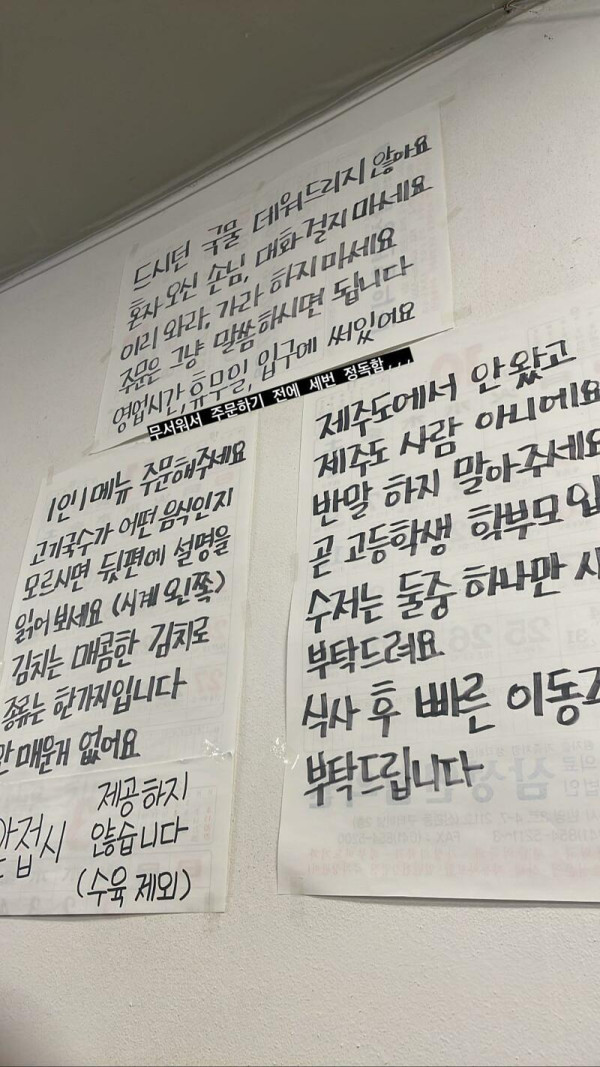 드시던 국물 데워드리지 않아요
혼자 오신 손님, 대화 걸지 마세요
이리 와라, 가라 하지 마세요
주문은 그냥 말씀하시면 됩니다
영업시간, 휴무일, 입구에 써있어요
무서워서 주문하기 전에 세번 정독함...
1인 1메뉴 주문해주세요
고기국수가 어떤 음식인지
모르시면 뒷편에 설명을
읽어 보세요 (시계 왼쪽)
김치는 매콤한 김치로
종류는 한가지입니다
안 매운거 없어요
접시 제공하지
않습니다
(수육 제외)
제주도에서 안 왔고
제주도 사람 아니에요
반말 하지 말아주세요
곧 고등학생 학부모
수저는 둘중 하나만
부탁드려요
식사 후 빠른 이동
부탁드립니다